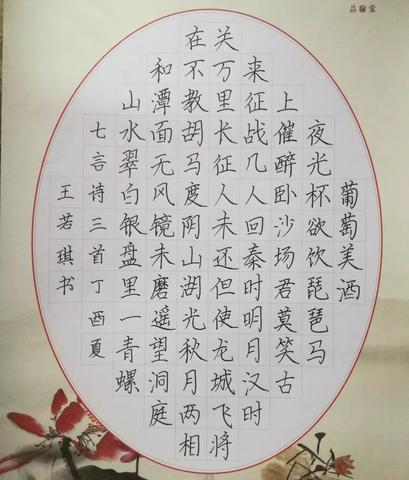 品翰堂
葡萄美酒
夜光杯欲饮琵琶马
上催醉卧沙场君莫笑古
来征战几人回秦时明月汉时
关万里长征人未还但使龙城飞将
在不教胡马度阴山湖光秋月两相
和潭面无风镜未磨遥望洞庭
山水翠白银盘里一青螺
七言诗三首丁酉夏
王若琪书